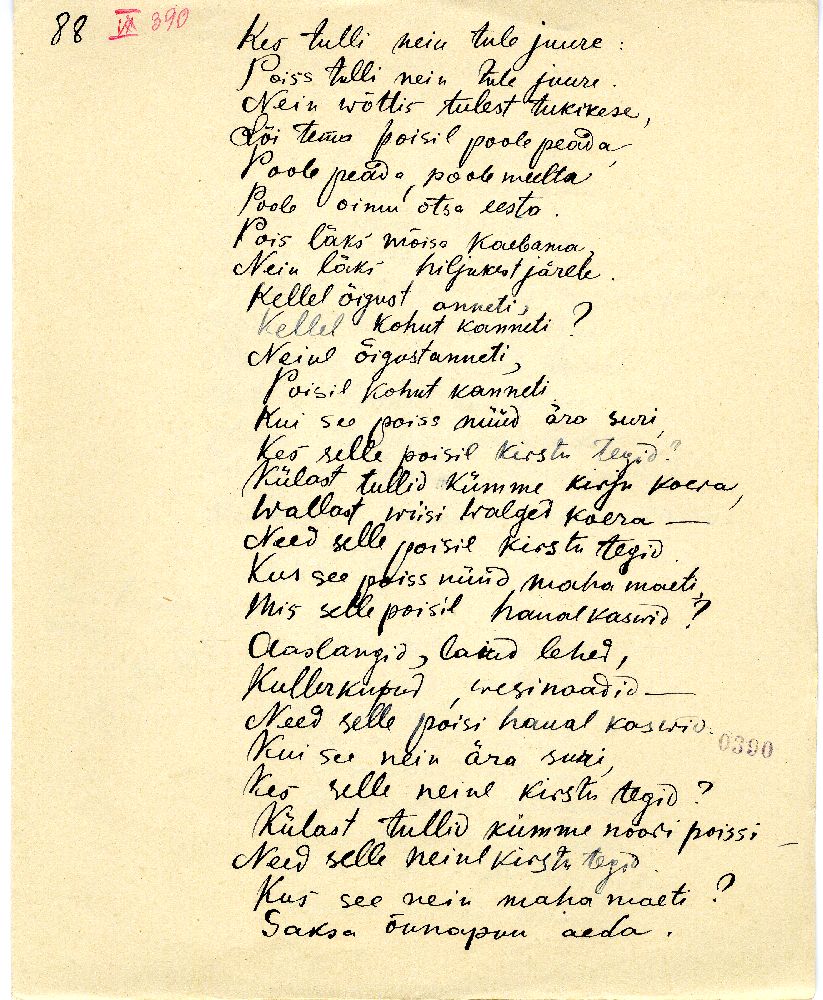 88 VI 390
Kes tulli nein tule juure:
Poiss tulli nein tule juure.
Nein wõttis tulest tukikese,
Lõi tema poisil poole peada,
Poole peada, poole meelta
Poole oimu otsa eesta.
Pois läks mõisa kaebama,
Nein läks hiljukest järele.
Kellel õigust anneti,
Kellel kohut kanneti?
Neiul õigust anneti,
Poisil kohut kanneti
Kui see poiss nüüd ära suri,
Kes selle poisil kirstu tegid?
Külast tullid kümme kirju koera,
Wallast wiisi walged koera —
Need selle poisil kirstu tegid.
Kus see poiss nüüd maha maeti,
Mis selle poisil haual kaswid?
Aaslangid, laiad lehed,
Kullerkupud, wesinoadid —
Need selle poisi haual kaswid.
0390
Kui see nein ära suri,
Kes selle neiul kirstu tegid?
Külast tullid kümme noori poissi —
Need selle neiul kirstu tegid.
Kus see nein maha maeti?
Saksa õunapuu aeda.